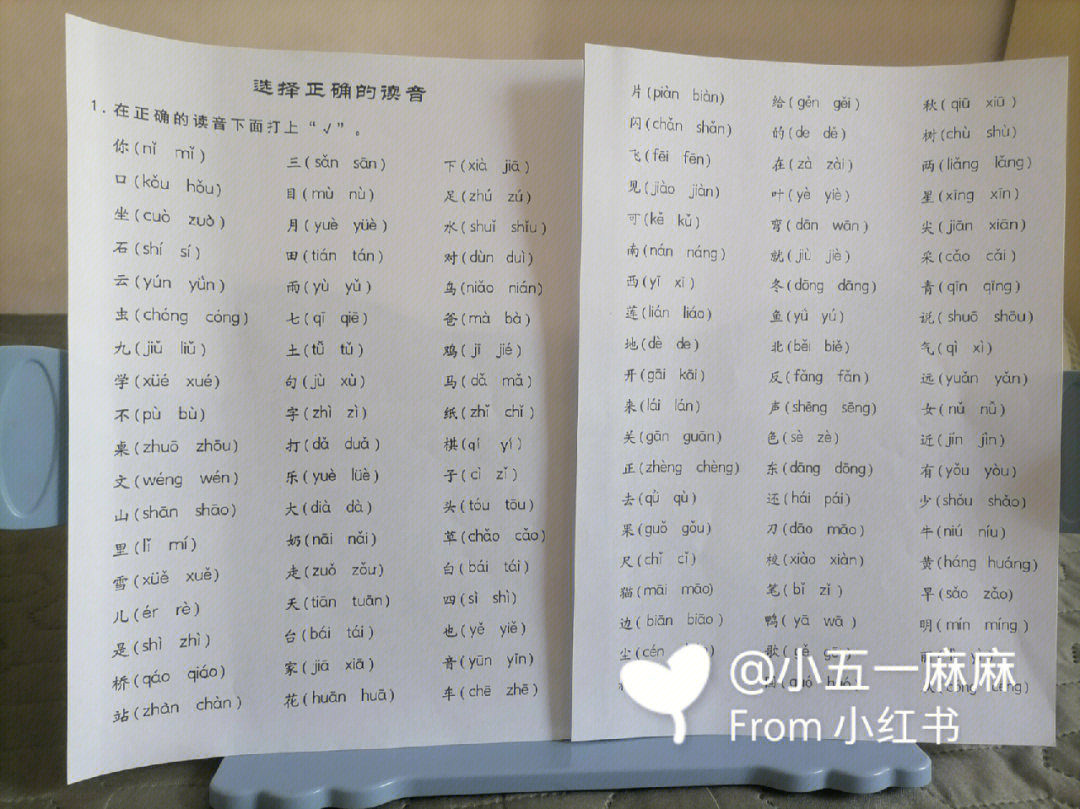 选择正确的读音
1. 在正确的读音下面打上“√”。
你(nǐ mǐ) 三(sǎn sān) 下(xià jiā)
口(kǒu hǒu) 目(mù nù) 足(zhú zú)
坐(cuò zuò) 月(yuè yüè) 水(shuǐ shǐu)
石(shí sí) 田(tián tán) 对(dùn duì)
云(yún yǘn) 雨(yù yǔ) 鸟(niǎo nián)
虫(chóng cóng) 七(qī qiē) 爸(mà bà)
九(jiǔ liǔ) 土(tǚ tǔ) 鸡(jī jié)
学(xüé xué) 句(jù xù) 马(dǎ mǎ)
不(pù bù) 字(zhì zì) 纸(zhǐ chǐ)
桌(zhuō zhōu) 打(dǎ duǎ) 棋(qí yí)
文(wéng wén) 乐(yuè lüè) 子(cì zǐ)
山(shān shāo) 大(dià dà) 头(tóu tōu)
里(lǐ mí) 奶(nāi nǎi) 草(chǎo cǎo)
雪(xüě xuě) 走(zuǒ zǒu) 白(bái tái)
儿(ér rè) 天(tiān tuān) 四(sì shì)
是(shì zhì) 台(bái tái) 也(yě yiě)
桥(qáo qiáo) 家(jiā xiā) 音(yūn yīn)
站(zhàn chàn) 花(huān huā) 车(chē zhē)
片(piàn biàn) 给(gěn gěi) 秋(qiū xiū)
闪(chǎn shǎn) 的(de dé) 树(chù shù)
飞(fēi fēn) 在(zà zài) 两(liǎng lǎng)
见(jiào jiàn) 叶(yè yiè) 星(xīng xīn)
可(kě kǔ) 弯(dān wān) 尖(jiān xiān)
南(nán náng) 就(jiù jiè) 采(cǎo cǎi)
西(yī xī) 冬(dōng dāng) 青(qīn qīng)
莲(lián liáo) 鱼(yǘ yú) 说(shuō shōu)
地(dè de) 北(běi biě) 气(qì xì)
开(gāi kāi) 反(fǎng fǎn) 远(yuǎn yǎn)
来(lái lán) 声(shēng sēng) 女(nǔ nǚ)
关(gān guān) 色(sè zè) 近(jīn jìn)
正(zhèng chèng) 东(dāng dōng) 有(yǒu yòu)
去(qǜ qù) 还(hái pái) 少(shǒu shǎo)
果(guǒ gǒu) 刀(dāo māo) 牛(niú níu)
尺(chǐ cǐ) 校(xiào xiàn) 黄(háng huáng)
猫(māi māo) 笔(bǐ zǐ) 早(sǎo zǎo)
边(biān biāo) 鸭(yā wā) 明(mín míng)
尘(cén
歌(gē
@小五一麻麻
From 小红书